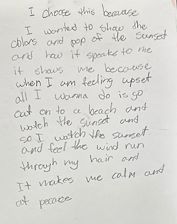 I choose this because
I wanted to show the
colors and pop of the sunset
and how it speaks to me
it shows me because
when I am feeling upset
all I wanna do is go
out on to a beach and
watch the sunset and
so I watch the sunset
and feel the wind run
through my hair and
It makes me calm and
at peace